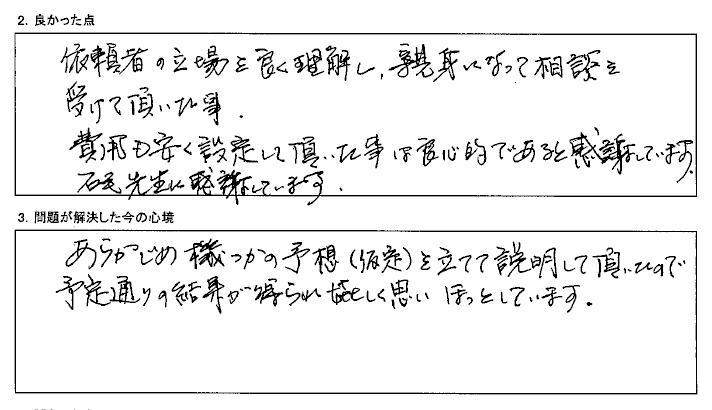 2. 良かった点
依頼者の立場を良く理解し、親身になって相談を
受けて頂いた事。
費用も安く設定して頂いた事は良心的であると感謝しています。
先生に感謝しています。
3. 問題が解決した今の心境
あらかじめ機つかの予想(仮定)を立てて説明して頂いたので
予定通りの結果が得られ嬉しく思いほっとしています。